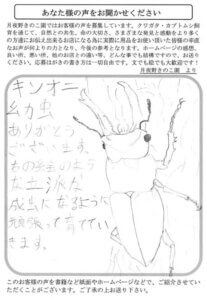 あなた様の声をお聞かせください
月夜野きのこ園ではお客様の声を募集しています。クワガタ・カブトムシ飼
育を通じて、自然との共生、命の大切さ、さまざまな発見と感動をより多く
の方達にお伝え出来るお店になる為に実際に用品をお使い頂いた皆様の率直
なお声が何よりの力となり、今後の参考となります。ホームページの感想、
良い所、悪い所、他のお店との違い等、どんな事でも結構ですので、お送り
ください。応募はがきの書き方は一切自由です。文でも絵でも大歓迎です！
月夜野きのこ園 より
キンオニ
幼虫
ありがとう
ございます
な立派な
成虫になるように
頑張って育ててい
きます。
このお客様の声を書籍など紙面やホームページなどで、ご紹介させてい
ただくことがございます。ご了承の上お送り下さい。